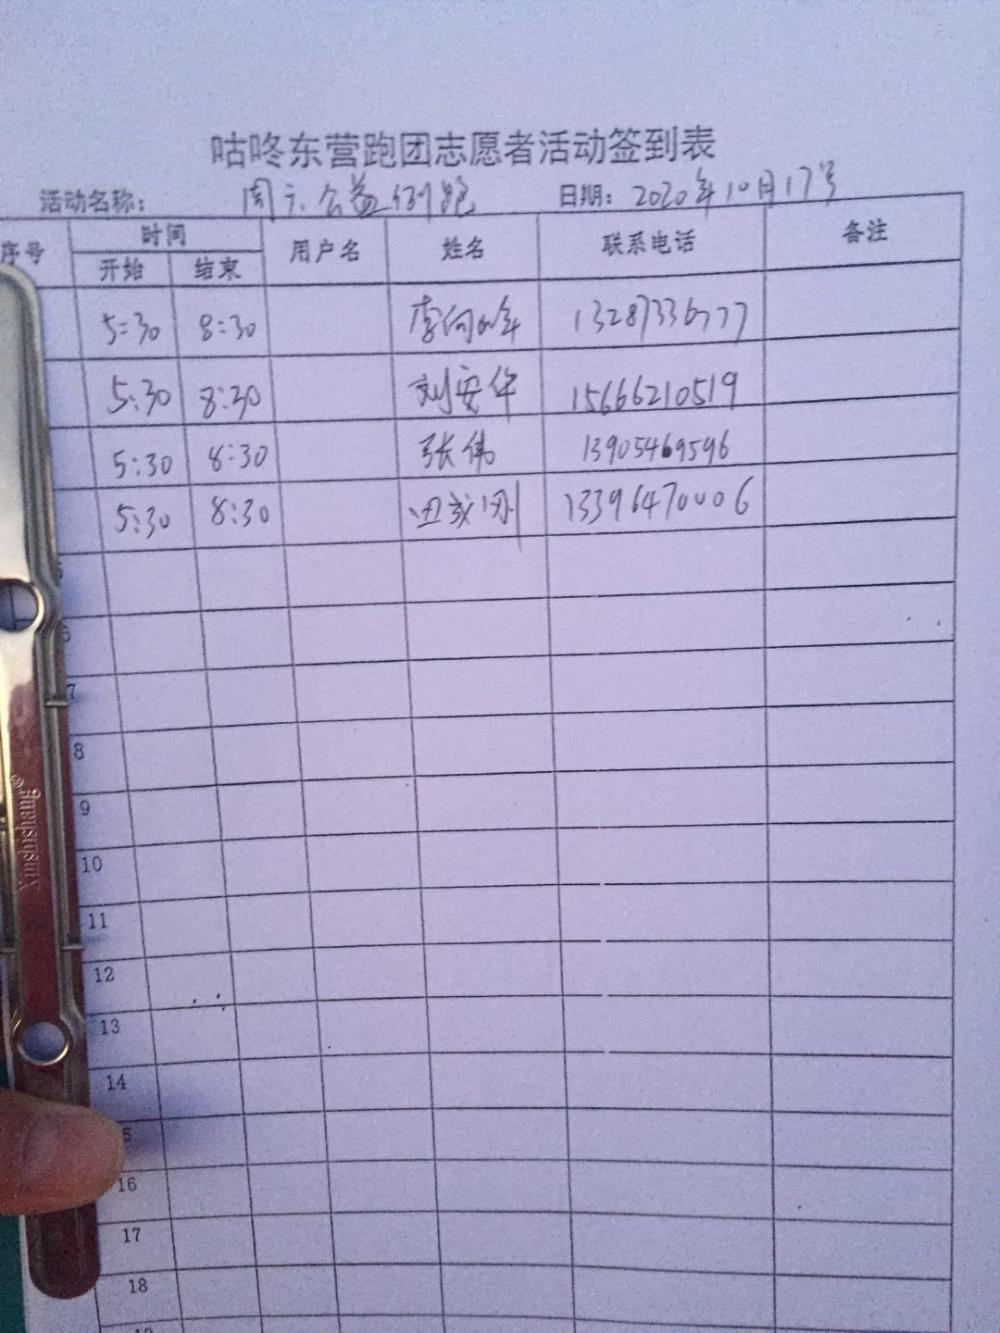 咕咚东营跑团志愿者活动签到表
活动名称: 周六公益例跑 日期: 2020年10月17号
序号 时间 用户名 姓名 联系电话 备注
开始 结束
5:30 8:30 李向年 13287336777
5:30 8:30 刘安华 15666210519
5:30 8:30 张伟 13905469596
5:30 8:30 刚 13396470006
6
7
8
9
10
11
12
13
14
5
16
17
18
Xinshishang®